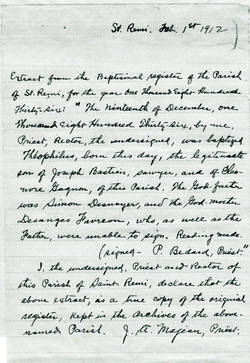 St. Remi. Feb. 1st 1912
Extract from the Baptismal register of the Parish
of St. Remi, for the year one Thousand Eight Hundred
Thirty-Six: " The nineteenth of December, one
Thousand Eight Hundred Thirty-Six, by me,
Priest, Rector, the undersigned, was baptized
Théophilus, born this day, the legitimate
son of Joseph Bastien, sawyer, and of Eleo-
nore Gagnon, of this Parish. The God-father
was Simon and the God-mother
Desanges Favreau, who, as well as the
Father, were unable to sign. Reading made.
(signed- P. Bedard, Priest."
I, the undersigned, Priest and Rector of
this Parish of Saint Remi, declare that the
above extract, is a true copy of the original
register, Kept in the Archives of the above-
named Parish. J. A. Priest.